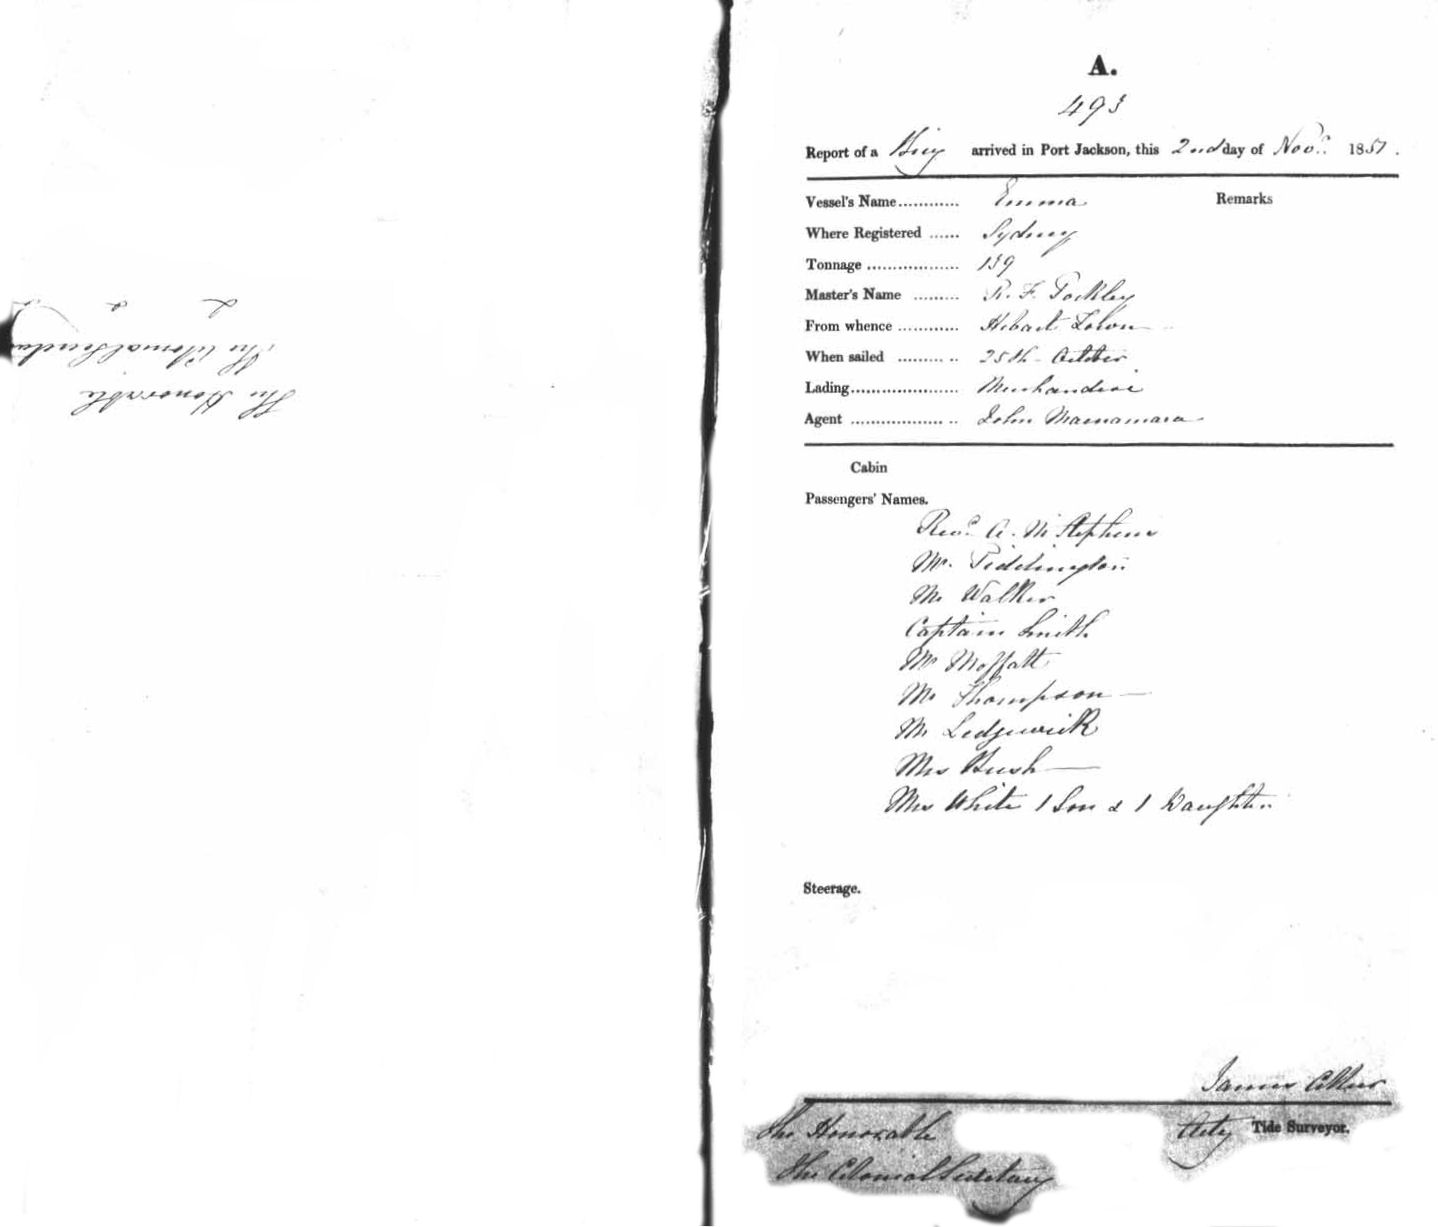 The Honorable
The Colonial Secretary
&c &c &c
A.
493
Report of a Brig arrived in Port Jackson, this 2nd day of Novr. 1851.
Vessel's Name............ Emma Remarks
Where Registered ...... Sydney
Tonnage .................. 139
Master's Name ......... R. F. Pockley
From whence ............ Hobart Town
When sailed ......... .. 25th October
Lading..................... Merchandise
Agent .................. .. John Macnamara
Cabin
Passengers' Names.
Revd. A. M Stephens
Mr. Piddington
Mr Walker
Captain Smith
Mr Moffatt
Mr Thompson
Mr Ledgwick
Mrs Bush
Mrs White 1 Son & 1 Daughter
Steerage.
James
Actg Tide Surveyor.
The Honorable
The Colonial Secretary